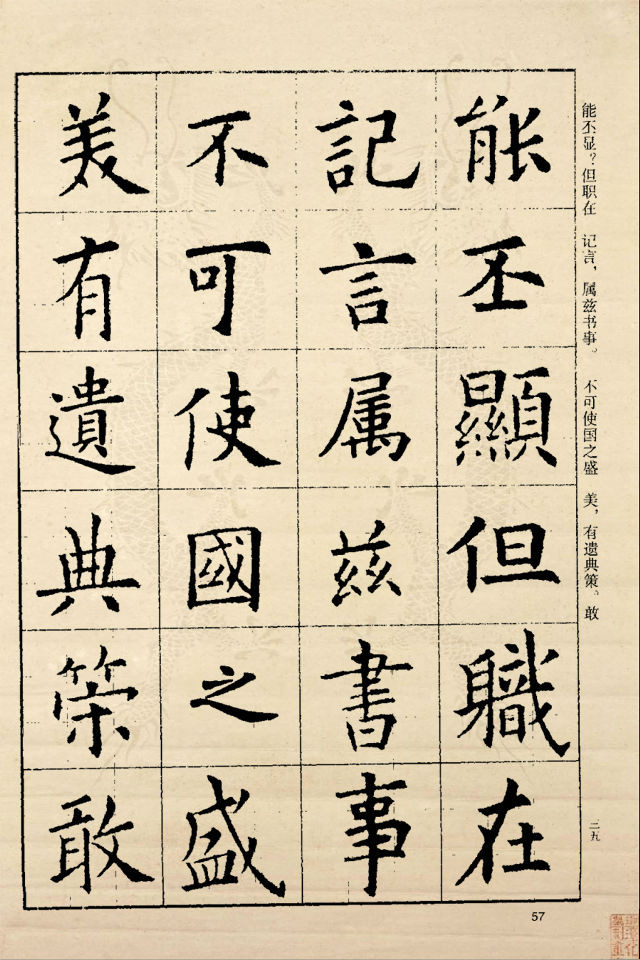 能丕顯但職在
記言属兹書事
不可使國之盛
美有遺典策敢
能丕显？但职在 记言，属兹书事。 不可使国之盛 美，有遗典策。敢
二五
57